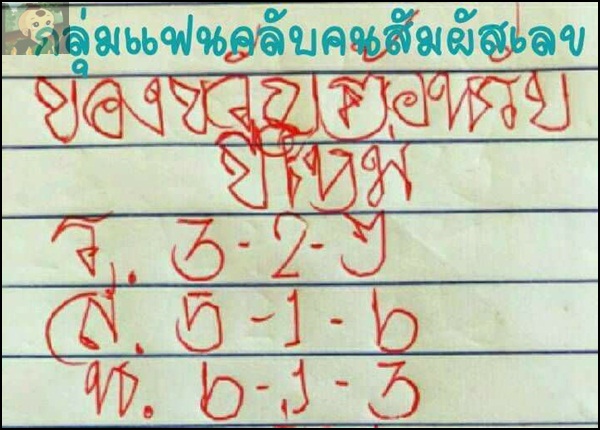 กลุ่มแฟนคลับคนสัมผัสเลข
ของขวัญต้อนรับ
ปีใหม่
จ. 3-2-
ส. 5-1-6
6-1-3